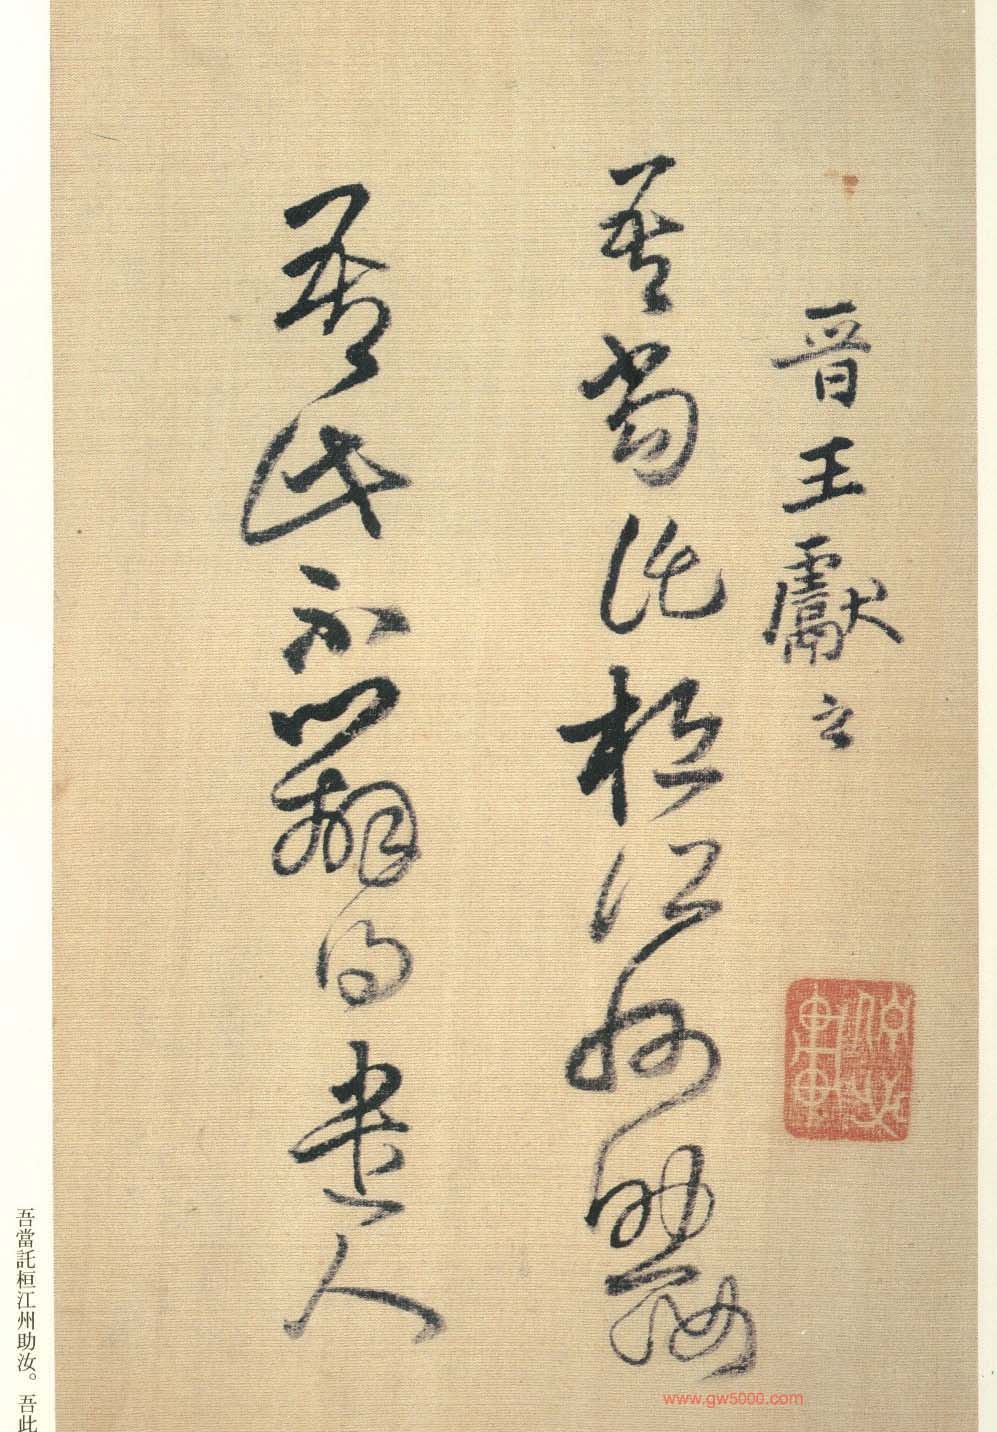 晉王獻之
吾當託桓江州助汝
吾此不辦得遣人
吾當託桓江州助汝。吾此
www.gw5000.com